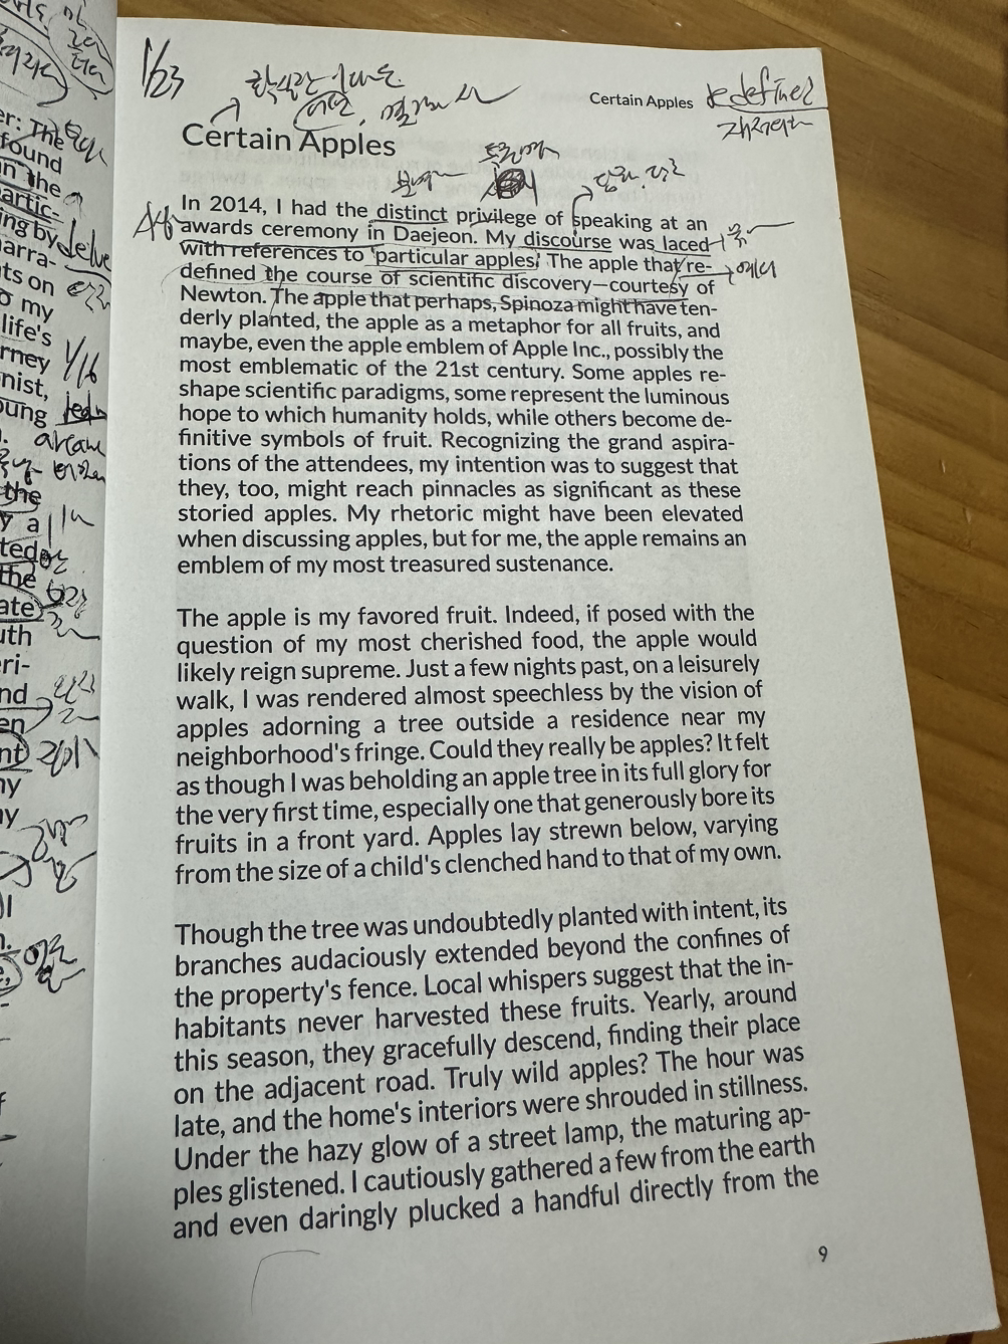 er: The
found
in the
artic-
ing by delve
arra-
ts on
o my
life's
rney 1/16
nist,
oung
arcane
the
y a
ted
the
ate
uth
eri-
nd
en
nt
ny
ny
1/23
Certain Apples redefined
재정의하다
Certain Apples
In 2014, I had the distinct privilege of speaking at an
awards ceremony in Daejeon. My discourse was laced
with references to 'particular apples.' The apple that re-
defined the course of scientific discovery—courtesy of
Newton. The apple that perhaps, Spinoza might have ten-
derly planted, the apple as a metaphor for all fruits, and
maybe, even the apple emblem of Apple Inc., possibly the
most emblematic of the 21st century. Some apples re-
shape scientific paradigms, some represent the luminous
hope to which humanity holds, while others become de-
finitive symbols of fruit. Recognizing the grand aspira-
tions of the attendees, my intention was to suggest that
they, too, might reach pinnacles as significant as these
storied apples. My rhetoric might have been elevated
when discussing apples, but for me, the apple remains an
emblem of my most treasured sustenance.
The apple is my favored fruit. Indeed, if posed with the
question of my most cherished food, the apple would
likely reign supreme. Just a few nights past, on a leisurely
walk, I was rendered almost speechless by the vision of
apples adorning a tree outside a residence near my
neighborhood's fringe. Could they really be apples? It felt
as though I was beholding an apple tree in its full glory for
the very first time, especially one that generously bore its
fruits in a front yard. Apples lay strewn below, varying
from the size of a child's clenched hand to that of my own.
Though the tree was undoubtedly planted with intent, its
branches audaciously extended beyond the confines of
the property's fence. Local whispers suggest that the in-
habitants never harvested these fruits. Yearly, around
this season, they gracefully descend, finding their place
on the adjacent road. Truly wild apples? The hour was
late, and the home's interiors were shrouded in stillness.
Under the hazy glow of a street lamp, the maturing ap-
ples glistened. I cautiously gathered a few from the earth
and even daringly plucked a handful directly from the
9